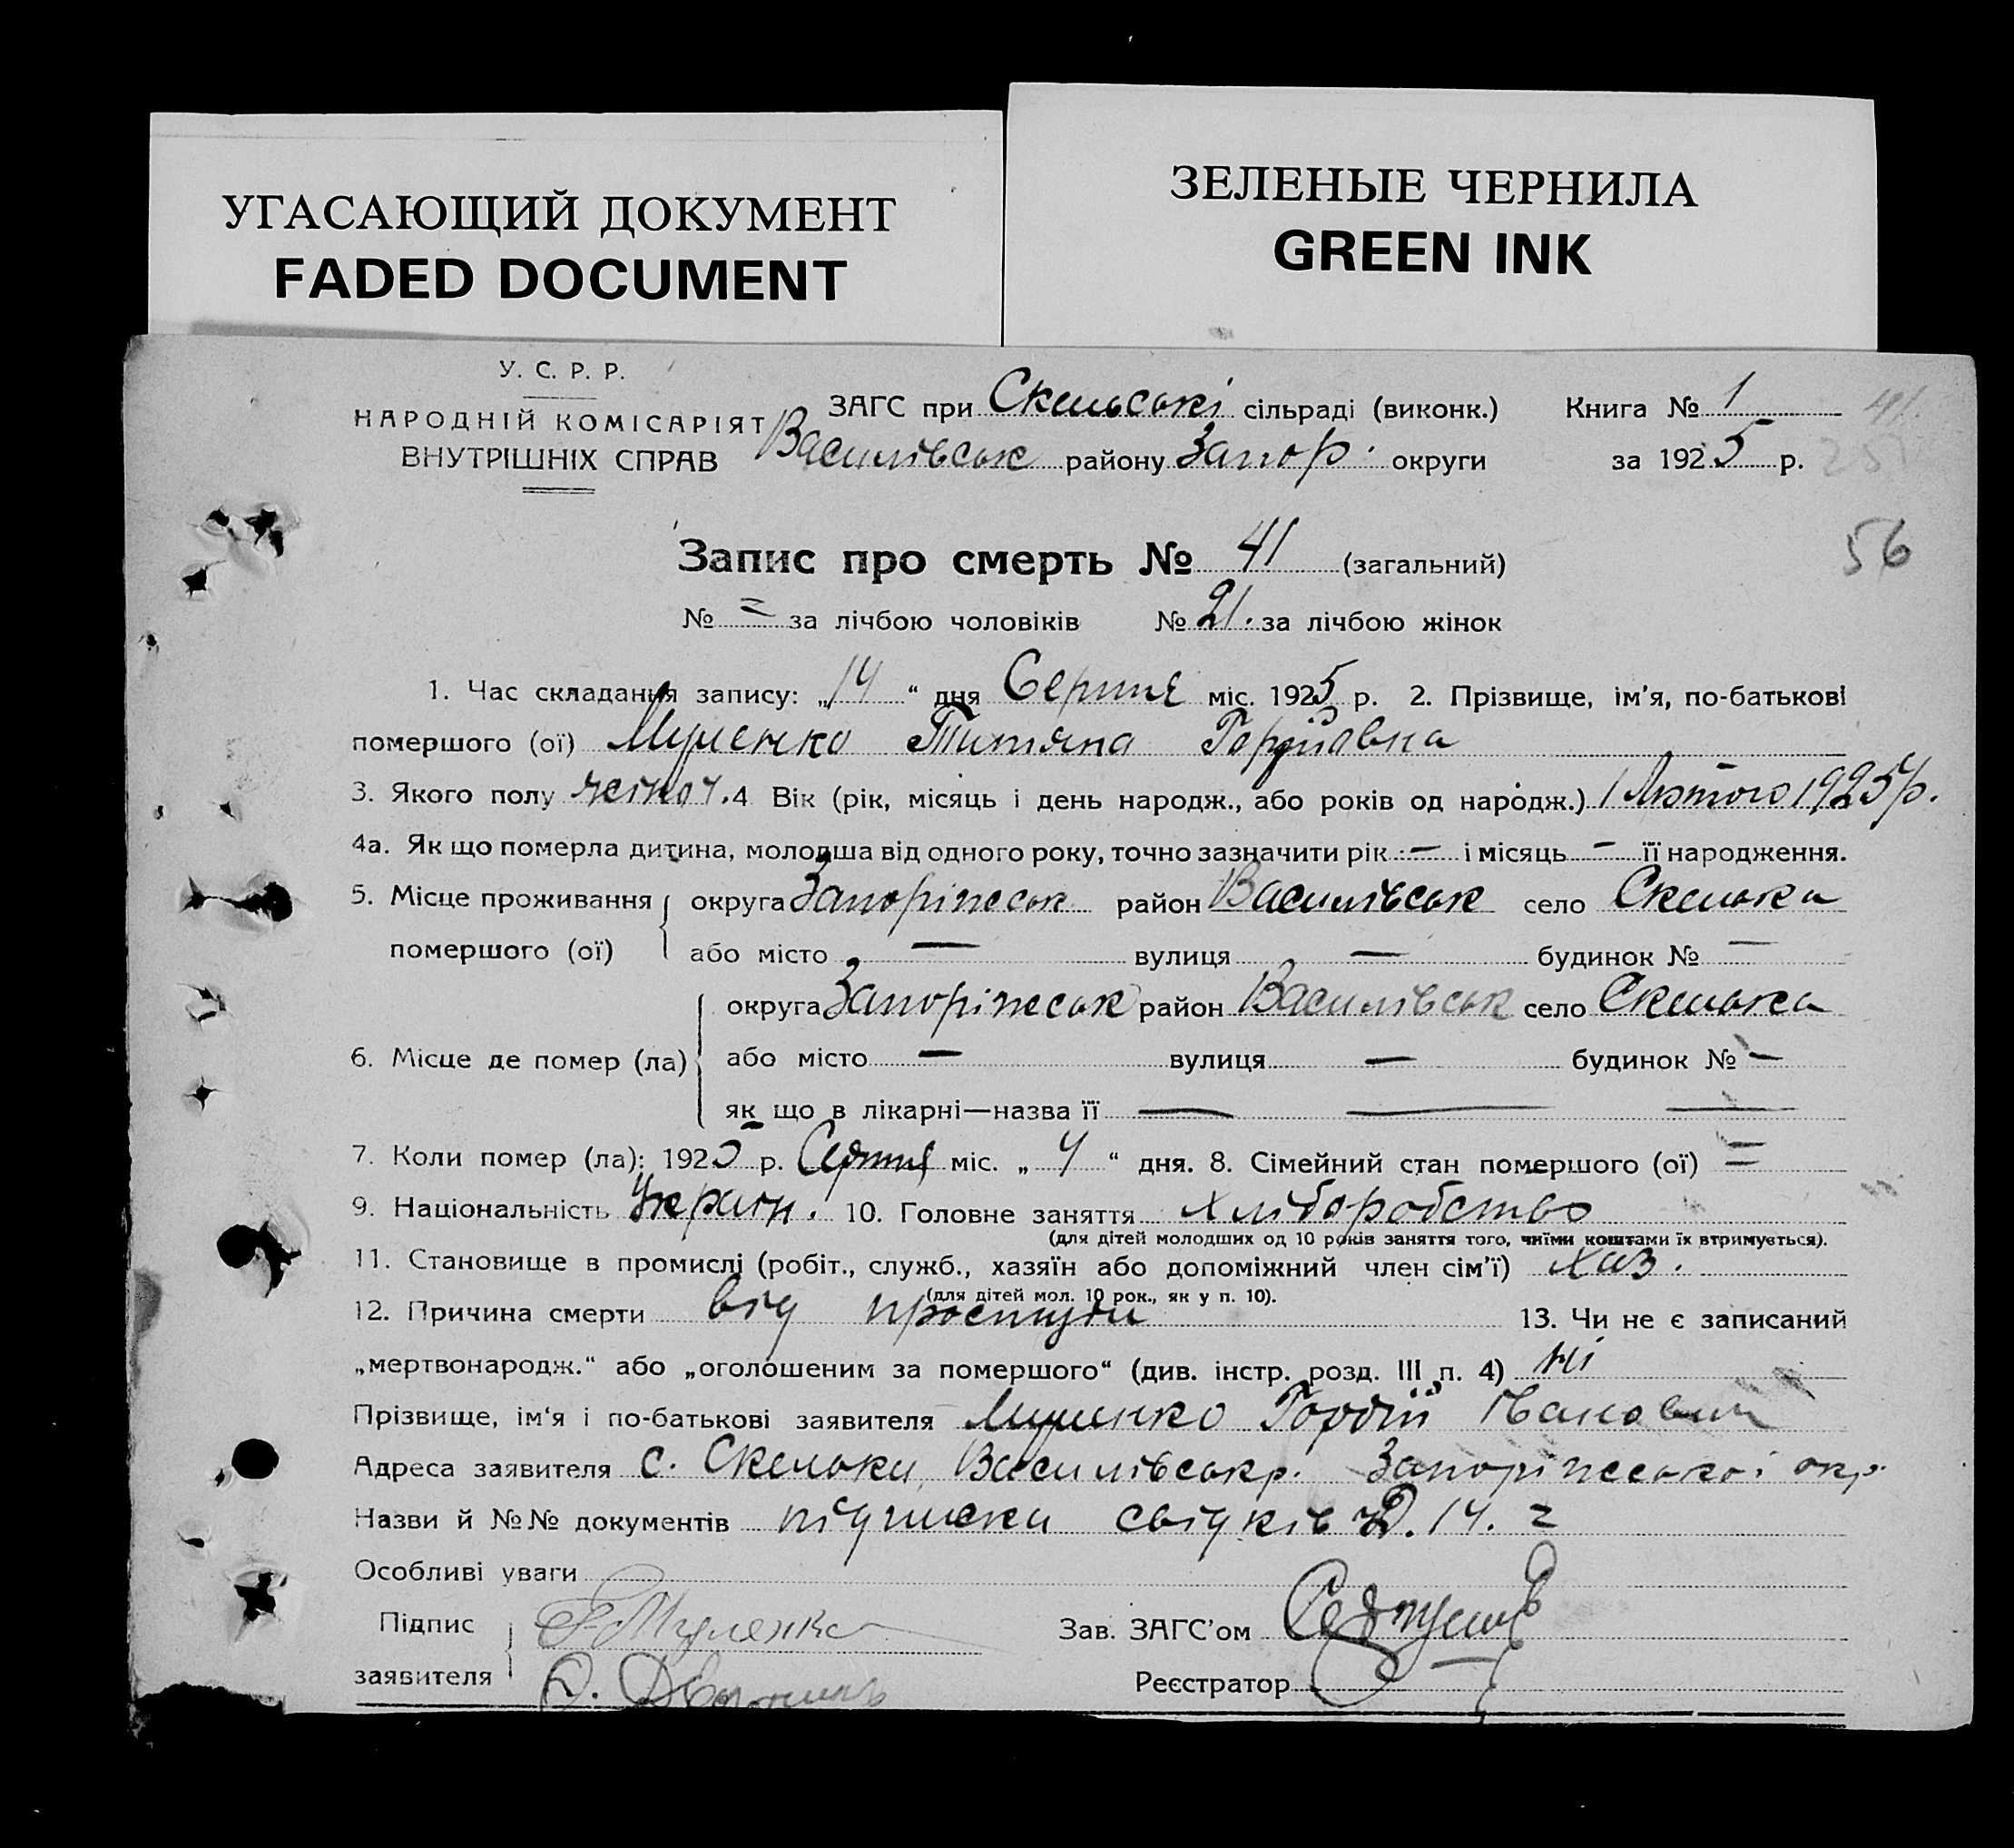 УГАСАЮЩИЙ ДОКУМЕНТ
FADED DOCUMENT
ЗЕЛЕНЫЕ ЧЕРНИЛА
GREEN INK
У. С. Р. Р.
НАРОДНІЙ КОМІСАРІЯТ
ВНУТРІШНІХ СПРАВ
ЗАГС при Скельські сільраді (виконк.) Книга № 1 41
Василівськ району Запор. округи за 1925 р.
56
Запис про смерть № 41 (загальний)
№ = за лічбою чоловіків № 21. за лічбою жінок
1. Час складання запису: „14“ дня Серпня міс. 1925 р. 2. Прізвище, ім'я, по-батькові
помершого (ої) Муленко Титяна Гордіівна
3. Якого полу жіноч. 4 Вік (рік, місяць і день народж., або років од народж.) 1 Лютого 1925 р.
4а. Як що померла дитина, молодша від одного року, точно зазначити рік — і місяць — її народження.
5. Місце проживання округа Запоріжськ район Василівськ село Скельки
помершого (ої) або місто — вулиця — будинок № —
округа Запоріжськ район Василівськ село Скельки
6. Місце де помер (ла) або місто — вулиця — будинок № —
як що в лікарні—назва її — — —
7. Коли помер (ла): 1925 р. Серпня міс. „4“ дня. 8. Сімейний стан помершого (ої) =
9. Національність Україн. 10. Головне заняття Хліборобство
(для дітей молодших од 10 років заняття того, чиїми коштами їх втримується).
11. Становище в промислі (робіт., служб., хазяїн або допоміжний член сім'ї) Хаз.
(для дітей мол. 10 рок., як у п. 10).
12. Причина смерти від простуди 13. Чи не є записаний
„мертвонародж.“ або „оголошеним за помершого“ (див. інстр. розд. III п. 4) ні
Прізвище, ім'я і по-батькові заявителя Муленко Гордій Іванович
Адреса заявителя с. Скельки, Василівськ р. Запоріжськоі окр.
Назви й №№ документів підписки свідків 14.
Особливі уваги
Підпис Г. Муленко Зав. ЗАГС'ом
заявителя Д. Реєстратор